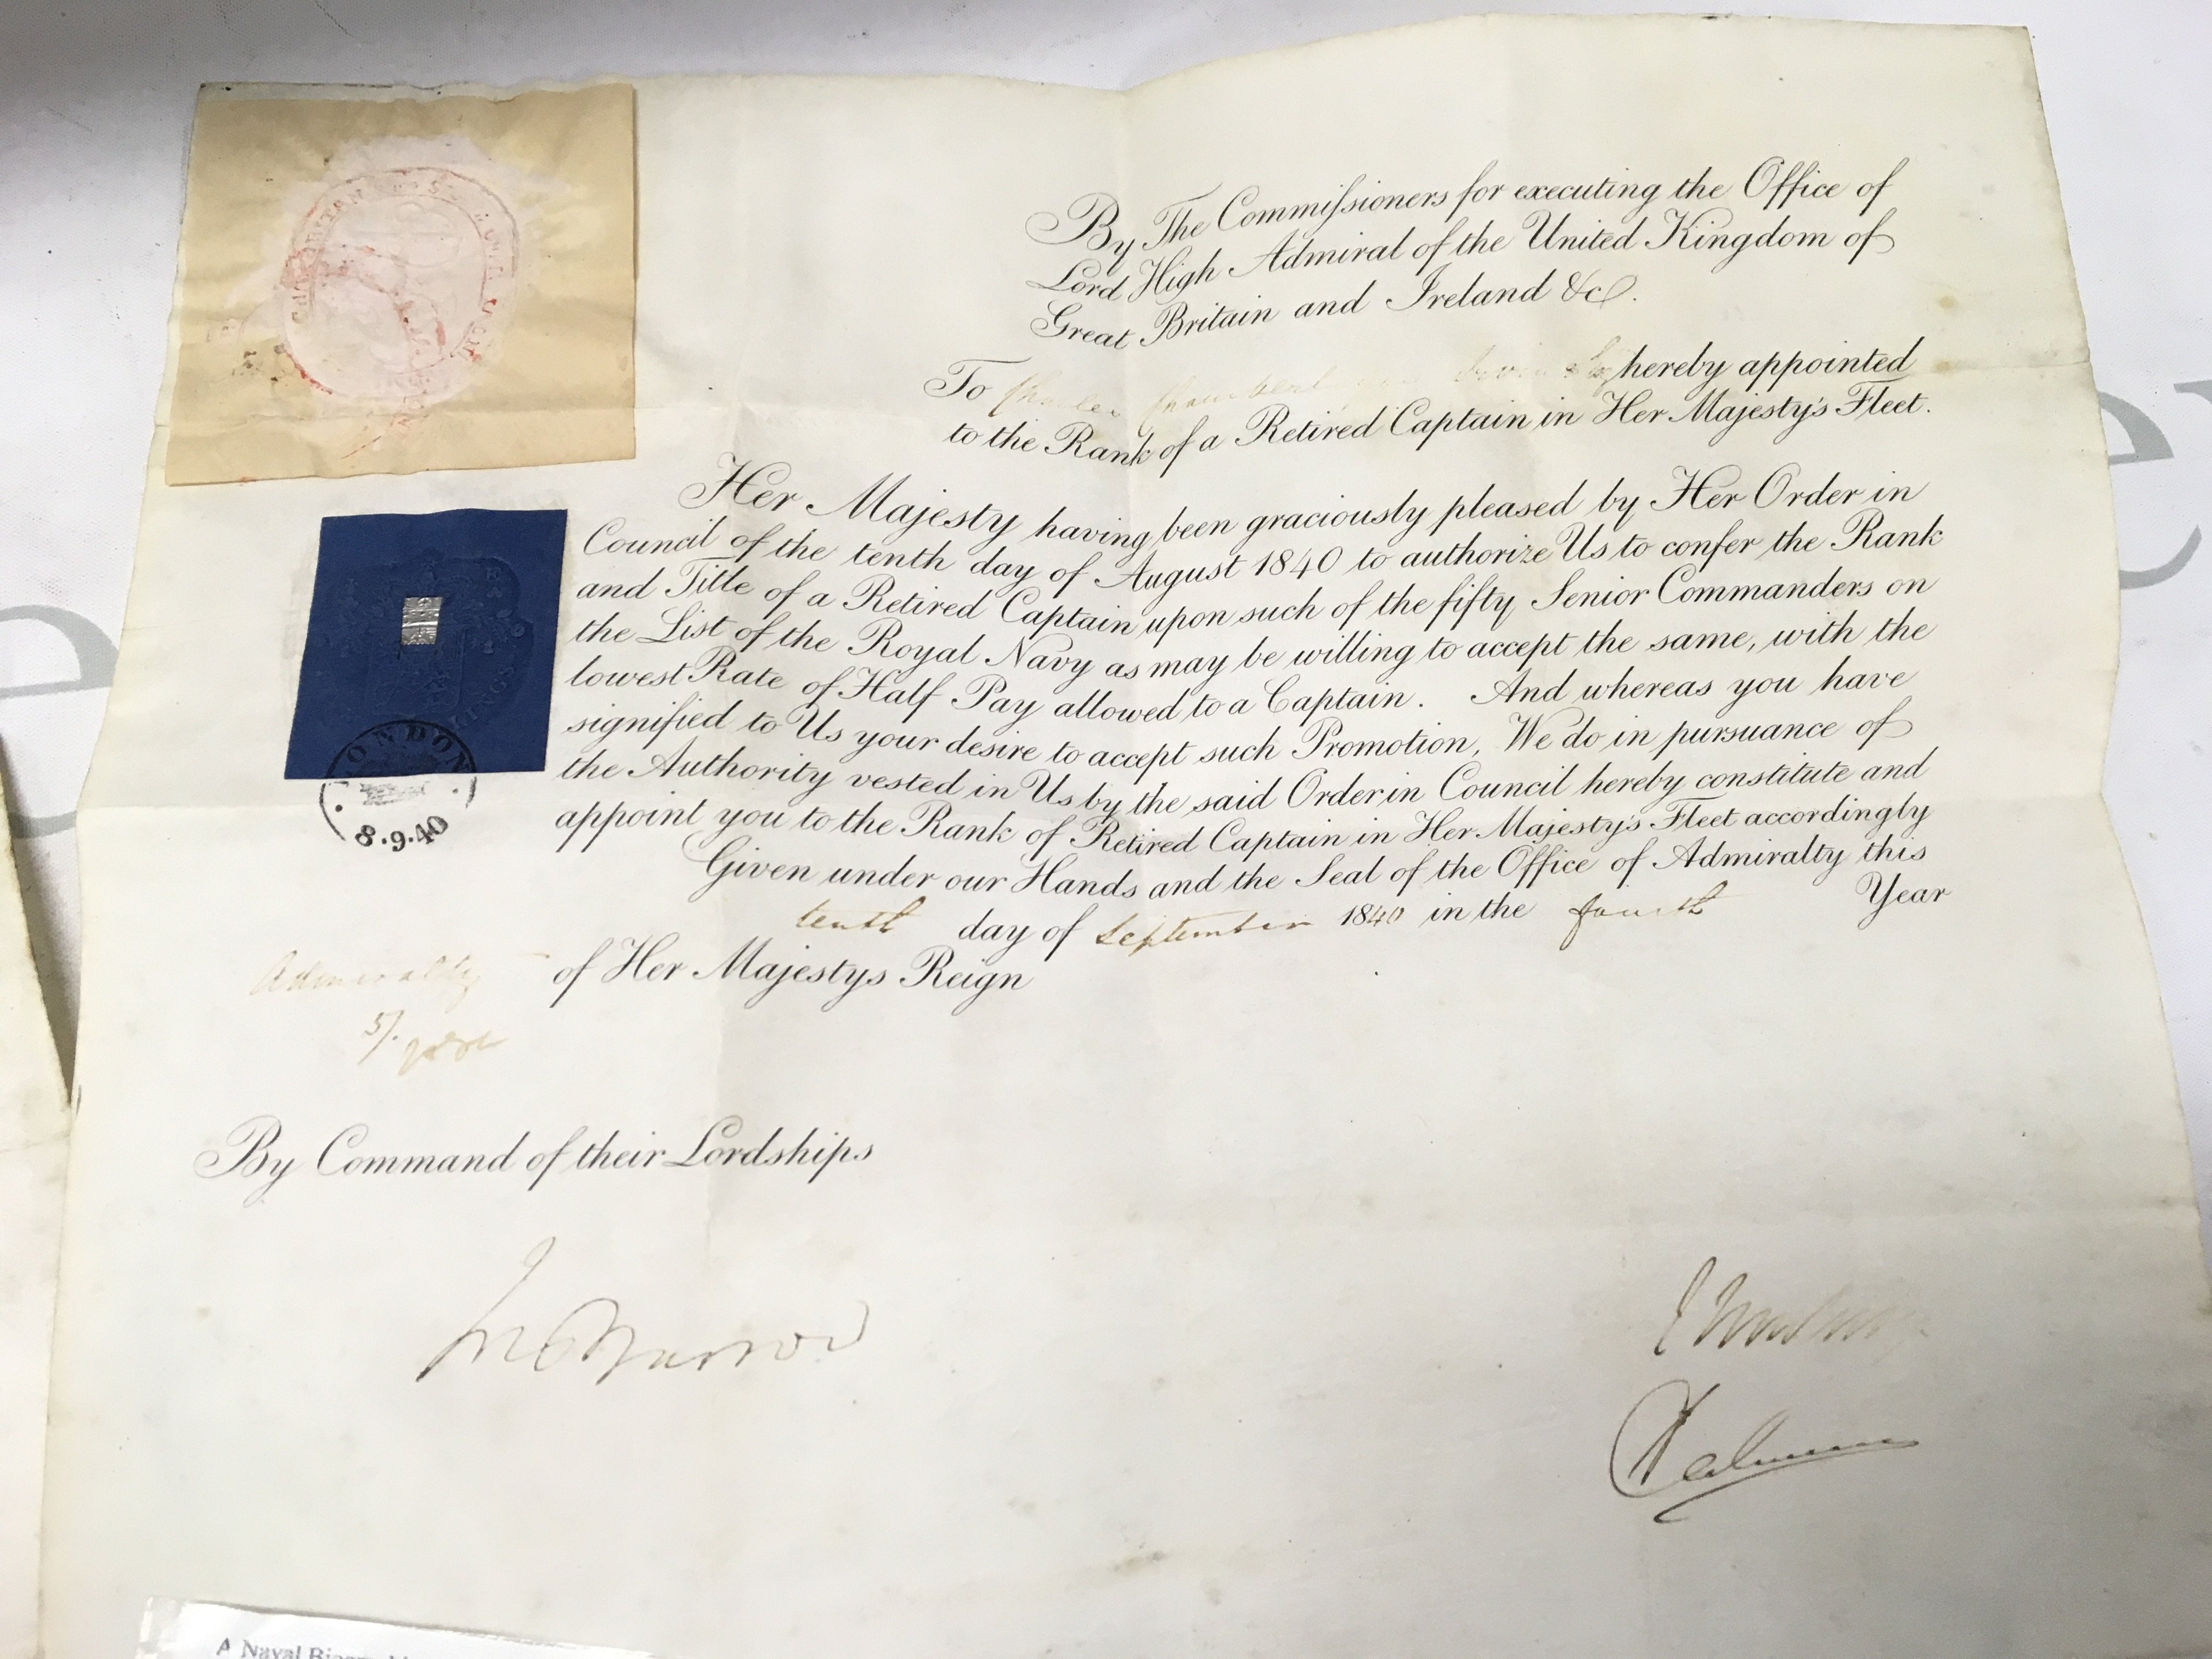 By The Commissioners for executing the Office of
Lord High Admiral of the United Kingdom of
Great Britain and Ireland &c.
To Charles hereby appointed
to the Rank of a Retired Captain in Her Majesty's Fleet.
Her Majesty having been graciously pleased by Her Order in
Council of the tenth day of August 1840 to authorize Us to confer the Rank
and Title of a Retired Captain upon such of the fifty Senior Commanders on
the List of the Royal Navy as may be willing to accept the same, with the
lowest Rate of Half Pay allowed to a Captain. And whereas you have
signified to Us your desire to accept such Promotion, We do in pursuance of
the Authority vested in Us by the said Order in Council hereby constitute and
appoint you to the Rank of Retired Captain in Her Majesty's Fleet accordingly
Given under our Hands and the Seal of the Office of Admiralty this
tenth day of September 1840 in the fourth Year
of Her Majestys Reign
LONDON
8.9.40
Admiralty
5/.
By Command of their Lordships
Jno Barrow
A Naval